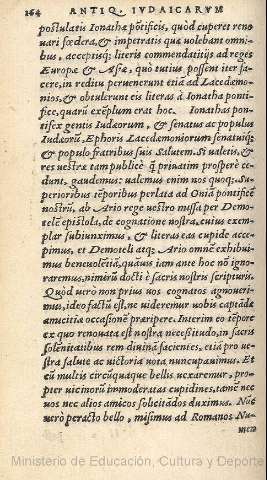 264 ANTIQ. IVDAICARVM
postulatis Ionathæ põtificis, quòd cuperet reno
uari fœdera, & impetratis quæ volebant omni-
bus, acceptisq; literis commendatitijs ad reges
Europæ & Asiæ, quò tutius possent iter fa-
cere, in reditu peruenerunt etiã ad Lacedæmo-
nios, & obtulerunt eis literas à Ionatha ponti-
fice, quarũ exẽplum erat hoc. Ionathas pon-
tifex gentis Iudæorum, & senatus ac populus
Iudæorũ, Ephoris Lacedæmoniorum senatuiq;
& populo fratribus suis Salutem. Si ualetis, &
res uestræ tam publicè q̃ priuatim prosperè ce-
dunt, gaudemus: ualemus enim nos quoq;. Su-
perioribus tẽporibus perlata ad Oniã pontificẽ
nostrũ, ab Ario rege uestro missa per Demo-
telẽ epistola, de cognatione nostra, cuius exem-
plar subiunximus, & literas eas cupide acce-
pimus, et Demoteli atq; Ario omnẽ exhibui-
mus beneuolẽtiã, quãuis iam ante hoc nõ igno-
raremus, nimirũ docti è sacris nostris scripturis.
Quòd uerò non prius uos cognatos agnoueri-
mus, ideo factũ est, ne uideremur uobis captãdæ
amicitiæ occasionẽ præripere. Interim eo tẽpore
ex quo renouata est nostra necessitudo, in sacris
solẽnitatibus rem diuinã facientes, etiã pro ue-
stra salute ac victoria vota nuncupauimus. Et
cũ multis circũquaque bellis uexaremur, pro-
pter uicinorũ immoderatas cupidines, tamẽ nec
uos nec alios amicos solicitãdos duximus. Nũc
uerò peracto bello, misimus ad Romanos Nu-
Ministerio de Educación, Cultura y Deporte